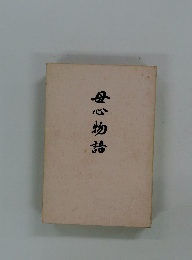 母心物語